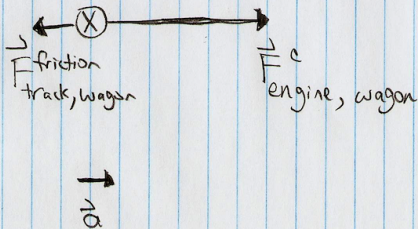 X
F⃗ friction
track, wagon
F⃗ c
engine, wagon
a⃗